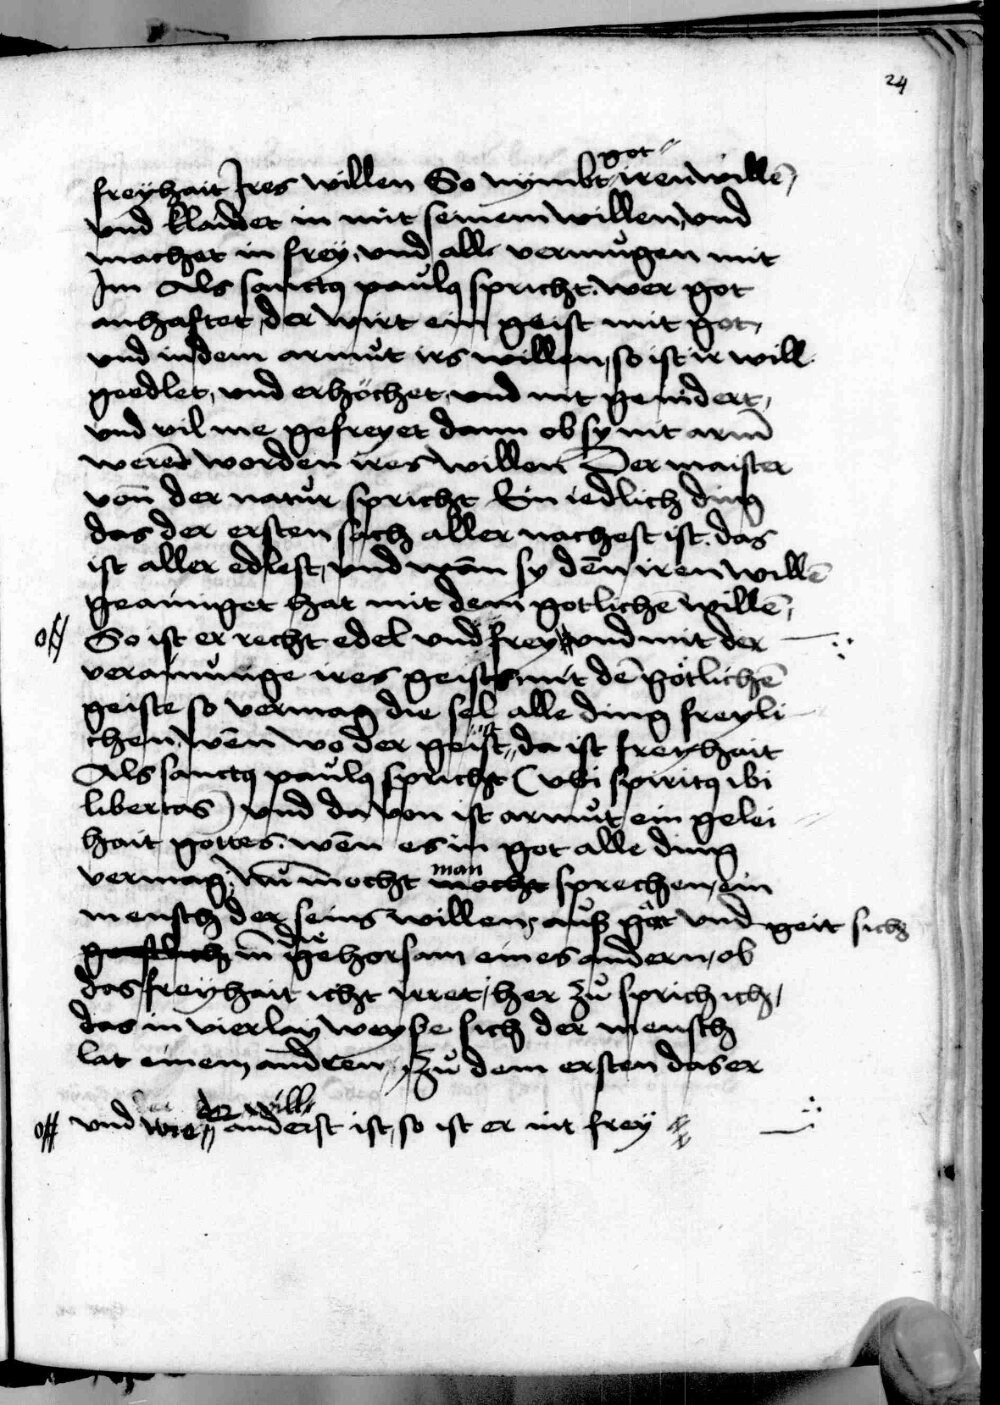 24
got
freyhait Jres willen So nymbt iren willē,
vnd klaidet in mit seinem willen, vnd
machet in frey, vnd all vermugen mit
Jm Als sanctus paulus spricht. wer got
anhaftet, der wirt ein geist mit got,
vnd in dem armůt irs willen, so ist ir will
geedlet, vnd erhöchet, vnd nit gemidert,
vnd vil me gefreyet dann ob sy nit arm
werent worden ires willen Der maister
von der natůr spricht Ein iedlich ding
das der ersten sach aller nachest ist. das
ist aller edlest, vnd wan sy den iren willē
geainiget hat mit dem gotlichē willē,
So ist er recht edel vnd frey vnd mit der
verainunge ires geists mit dē götlichē
geiste so vermag die sel alle ding freyli
chen, wēn wo der geist ist, da ist freyhait
Als sanctus paulus spricht (vbi spiritus ibi
libertas) vnd da von ist armůt ein gelei
hait gottes. wēn es in got alle ding
vermag. Nů mocht man sprechen, ein
mensch der seins willens auß gåt vnd geit sich
in die gehorsam eines andern, ob
das freyhait icht irret, her zů sprich ich,
das in vierlay weyse sich der mensch
lat einem andren, Zů dem ersten das er
der will
vnd wie anderst ist, so ist er nit frey